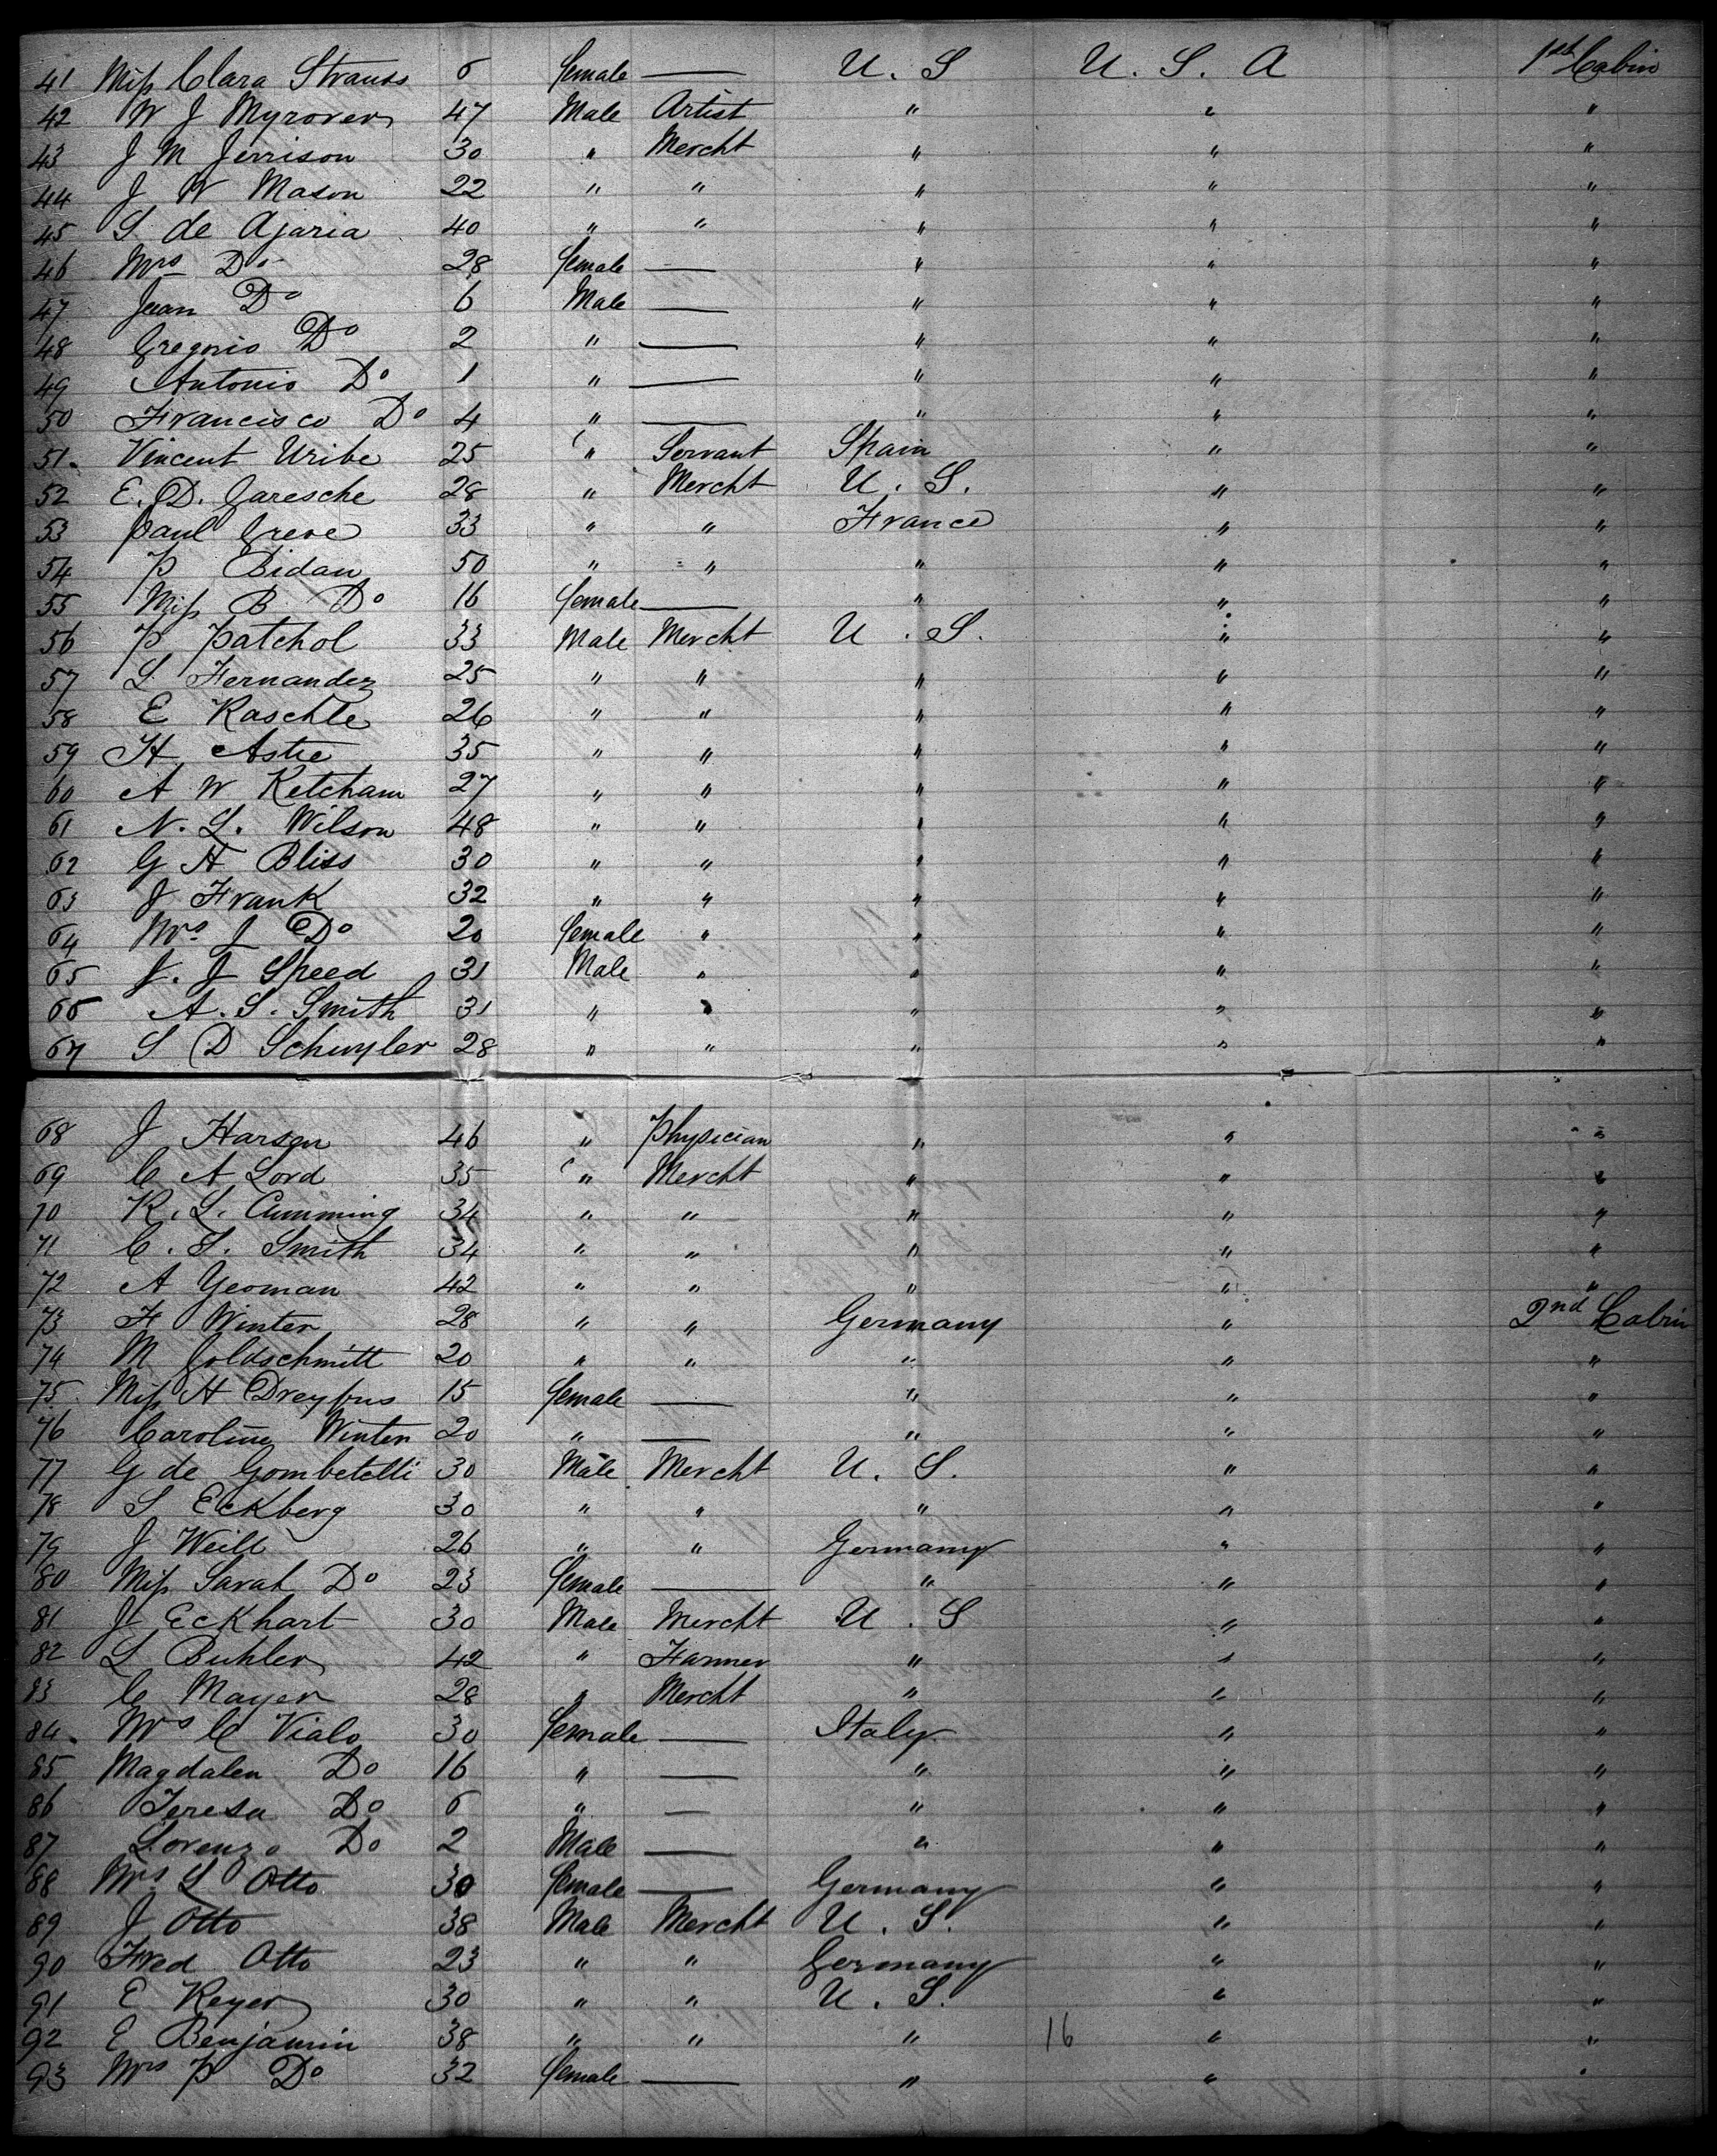 41 Miss Clara Strauss 6 female — U. S U. S. A 1st Cabin
42 W J Myrover 47 Male Artist " " "
43 J M Jerrison 30 " Mercht " " "
44 J W Mason 22 " " " " "
45 S de Ajaria 40 " " " " "
46 Mrs Do 28 female — " " "
47 Juan Do 6 Male — " " "
48 Gregorio Do 2 " — " " "
49 Antonio Do 1 " — " " "
50 Francisco Do 4 " — " " "
51. Vincent Uribe 25 " Servant Spain " "
52 E. D. Garesche 28 " Mercht U. S. " "
53 Paul Greve 33 " " France " "
54 P Bidau 50 " " " " "
55 Miss B. Do 16 female — " " "
56 P Patchol 33 Male Mercht U. S. " "
57 L Fernandez 25 " " " " "
58 E Raschle 26 " " " " "
59 H Astie 35 " " " " "
60 A W Ketcham 27 " " " " "
61 N. L. Wilson 48 " " " " "
62 G H Bliss 30 " " " " "
63 J Frank 32 " " " " "
64 Mrs J Do 20 female " " " "
65 J. J Speed 31 Male " " " "
66 A. S. Smith 31 " " " " "
67 S D Schuyler 28 " " " " "
68 J Harsen 46 " Physician " " "
69 C A Lord 35 " Mercht " " "
70 R. L. Cumming 34 " " " " "
71 C. S. Smith 34 " " " " "
72 A Yeoman 42 " " " " "
73 F Winter 28 " " Germany " 2nd Cabin
74 M Goldschmitt 20 " " " " "
75 Miss H Dreyfus 15 female — " " "
76 Caroline Winter 20 " — " " "
77 G de Gombetelli 30 Male Mercht U. S. " "
78 S Eckberg 30 " " " " "
79 J Weill 26 " " Germany " "
80 Miss Sarah Do 23 female — " " "
81 J Eckhart 30 Male Mercht U. S " "
82 L Buhler 42 " Farmer " " "
83 C Mayer 28 " Mercht " " "
84. Mrs C Vialo 30 female — Italy " "
85 Magdalen Do 16 " — " " "
86 Teresa Do 6 " — " " "
87 Lorenzo Do 2 Male — " " "
88 Mrs L Otto 30 female — Germany " "
89 J Otto 38 Male Mercht U. S. " "
90 Fred Otto 23 " " Germany " "
91 E Keyer 30 " " U. S. " "
92 E Benjamin 38 " " " 16 " "
93 Mrs P Do 32 female — " " "